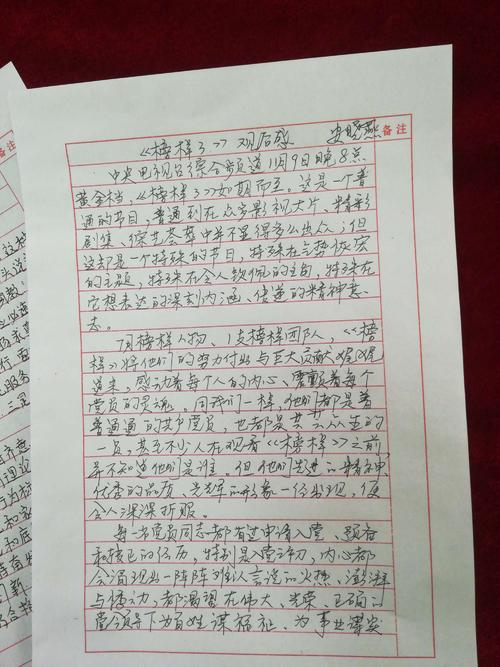 备注
《榜样3》观后感 安晓燕
中央电视台综合频道11月9日晚8点
黄金档，《榜样3》如期而至。这是一个普
通的节目，普通到在众多影视大片、精彩
剧集、综艺荟萃中并不显得多么出众；但
这却是一个特殊的节目，特殊在气势恢宏
的主题，特殊在令人钦佩的主角，特殊在
它想表达的深刻内涵、传递的精神意
志。
7位榜样人物、1支榜样团队，《榜
样》将他们的努力付出与巨大贡献娓娓
道来，感动着每个人的内心、震颤着每个
党员的灵魂。同我们一样，他们都是普
普通通的共产党员，也都是芸芸众生的
一员，甚至不少人在观看《榜样》之前，
并不知道他们是谁。但他们先进的精神
优秀的品质、光辉的形象一经出现，便
令人深深折服。
每一名党员同志都有过申请入党、预备
和转正的经历，特别是入党之初，内心都
会涌现出一阵阵难以言说的火热、澎湃
与激动，都渴望在伟大、光荣、正确的
党领导下为百姓谋福祉、为事业谋发